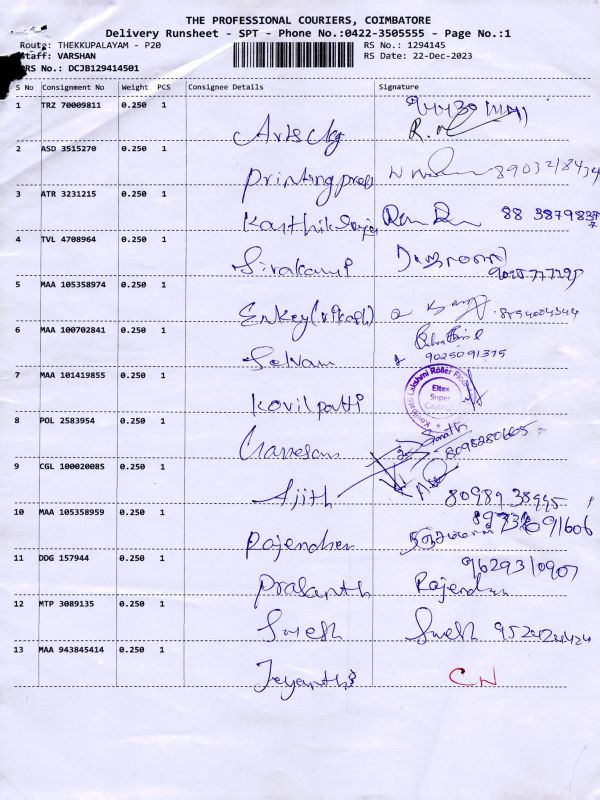 THE PROFESSIONAL COURIERS, COIMBATORE
Delivery Runsheet - SPT - Phone No.:0422-3505555 - Page No.:1
Route: THEKKUPALAYAM - P20 RS No.: 1294145
Staff: VARSHAN RS Date: 22-Dec-2023
DRS No.: DCJB129414501
S No Consignment No Weight PCS Consignee Details Signature
1 TRZ 70009811 0.250 1
Arts clg R.
2 ASD 3515270 0.250 1
Printing press 8903218434
3 ATR 3231215 0.250 1
Karthik Raja 88 3879837
4 TVL 4708964 0.250 1
Sivakami
5 MAA 105358974 0.250 1
Enkey (vikash)
6 MAA 100702841 0.250 1
Selvam 9025091375
7 MAA 101419855 0.250 1
Kovilpatti Lakshmi Roller Eltex Super
8 POL 2583954 0.250 1
Ganesan 8098280605
9 CGL 100020085 0.250 1
Ajith 80989 38995
10 MAA 105358959 0.250 1
Rajendren
11 DDG 157944 0.250 1
9629310907
Prasanth Rajendran
12 MTP 3089135 0.250 1
Suresh Suresh
13 MAA 943845414 0.250 1
Jeyanthi CN